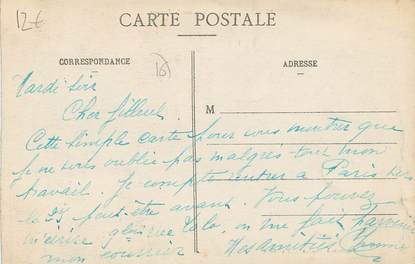 12€
CARTE POSTALE
CORRESPONDANCE
ADRESSE
Mardi soir
M
Cher filleul
Cette simple carte pour vous montrer que
je ne vous oublie pas malgrés tout mon
travail. Je compte rentrer à Paris vers
le 28 peut-être avant. Vous pouvez
m'écrire on me fait parvenir
mon courrier Mes Amitiés